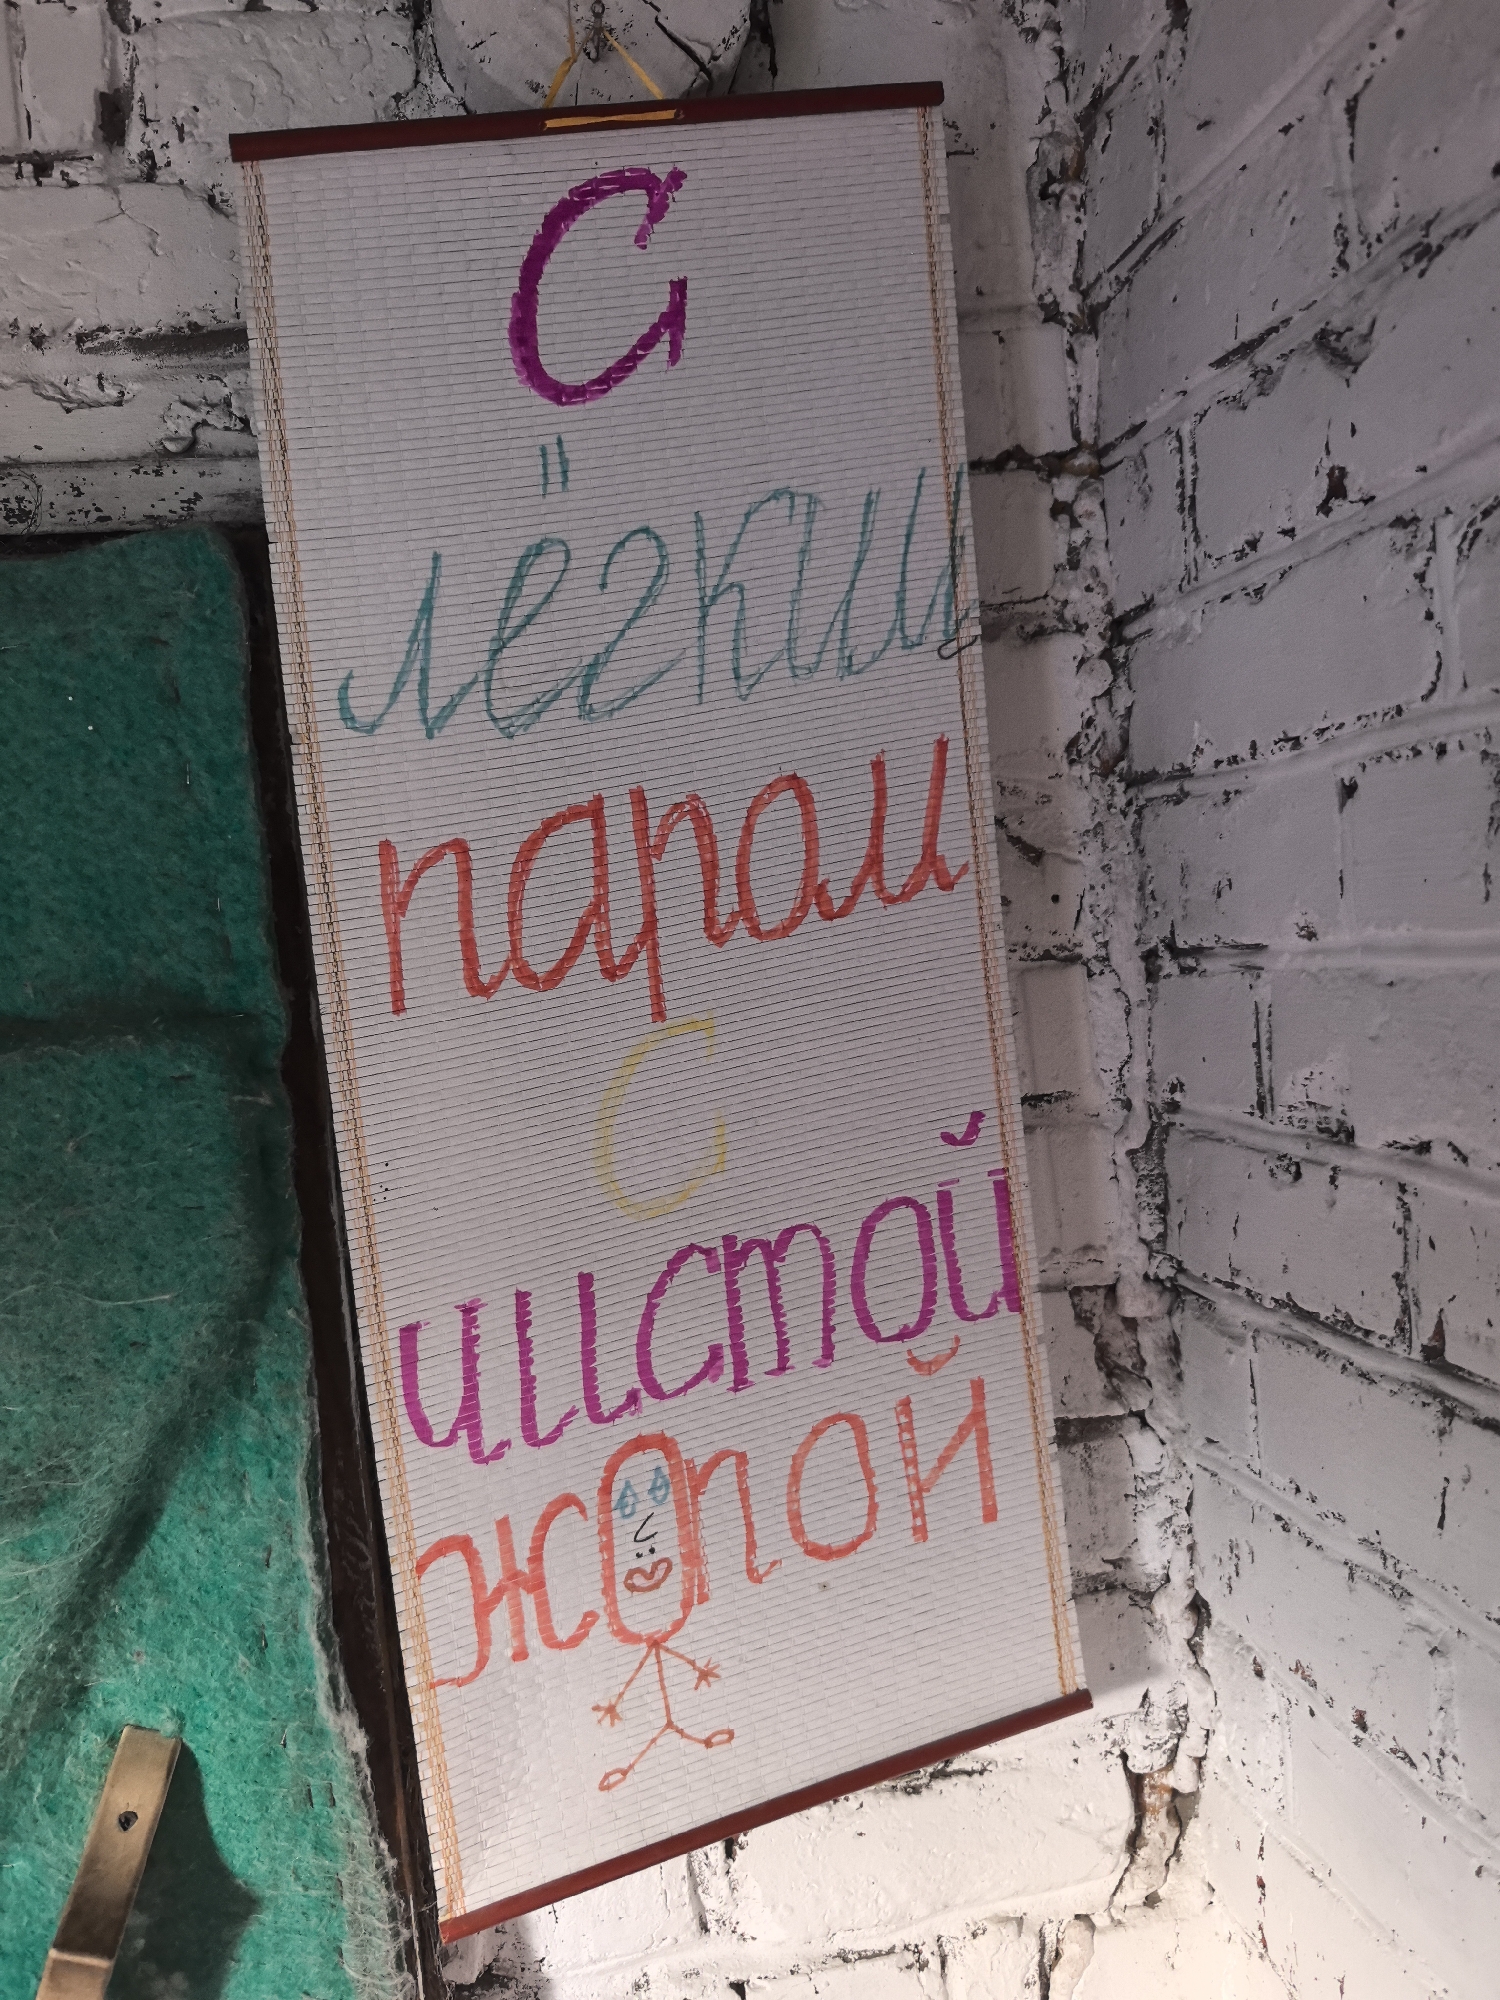 С
лёгким
паром
С
чистой
жопой